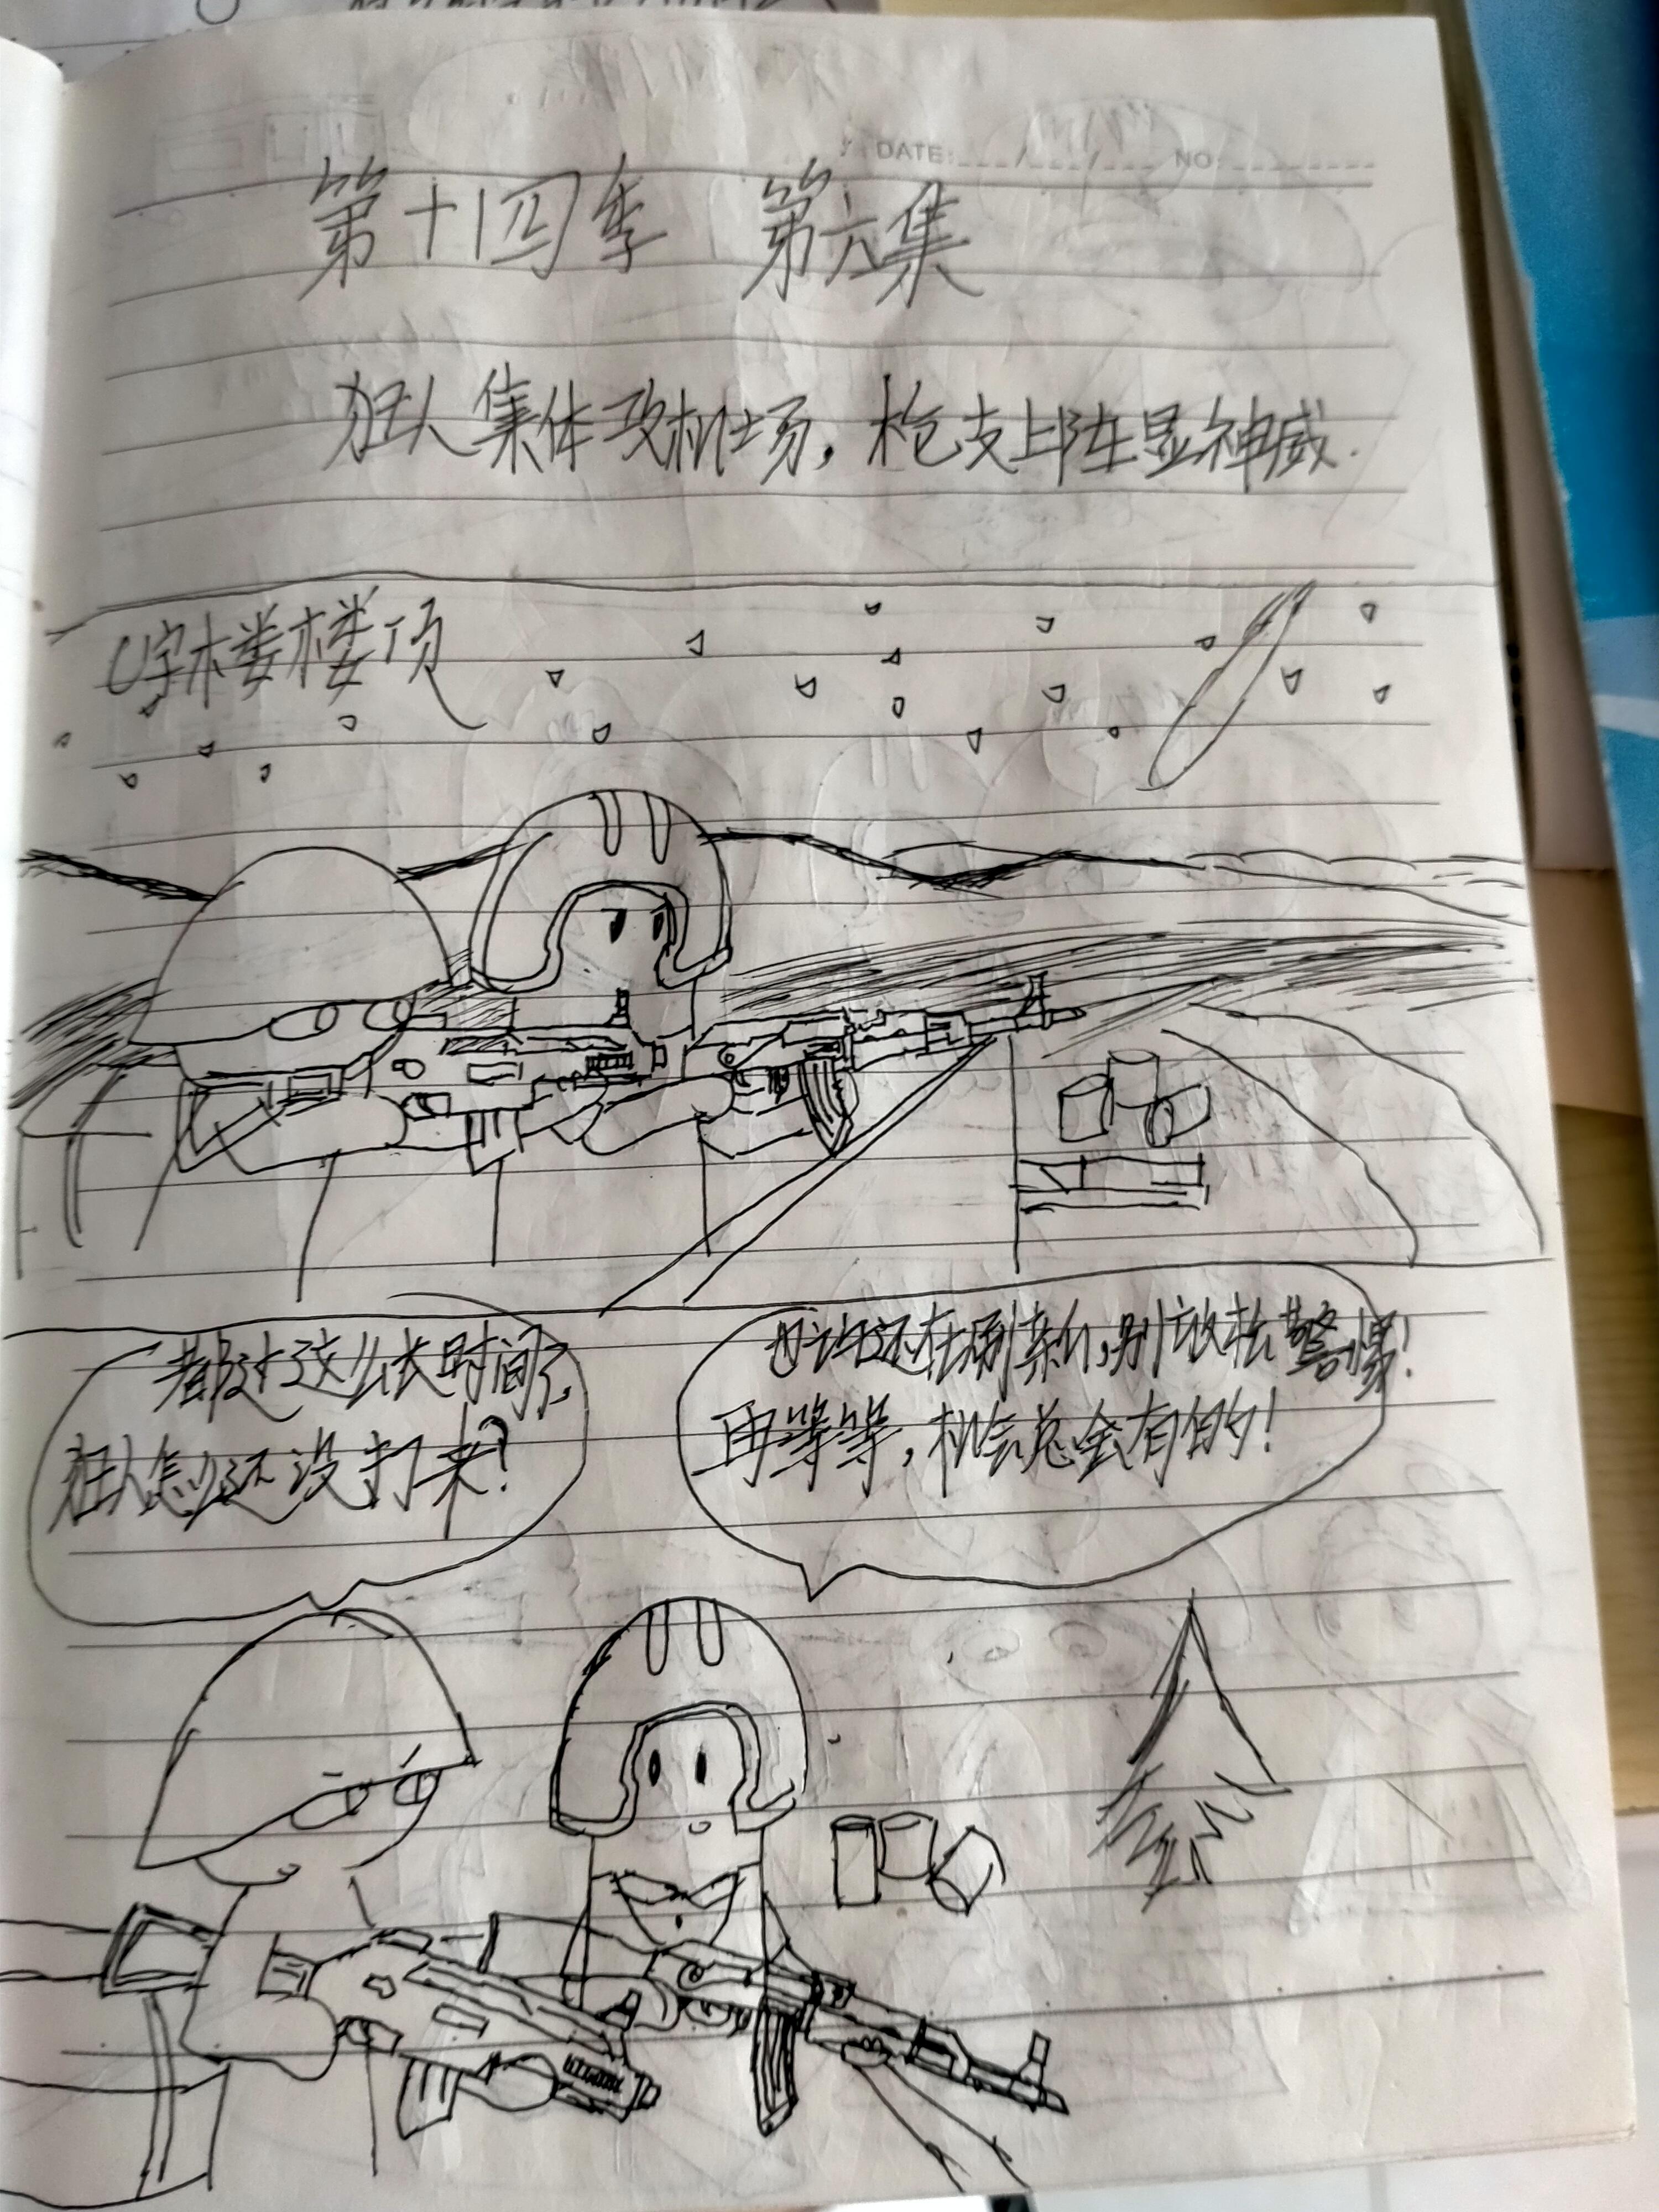 DATE: / / NO:
第十四季 第六集
狂人集体攻机场，枪支上阵显神威.
U字楼楼顶
都过了这么长时间了,
狂人怎么还没打来？
也许还在刷亲们,别放松警惕!
再等等，机会总会有的！